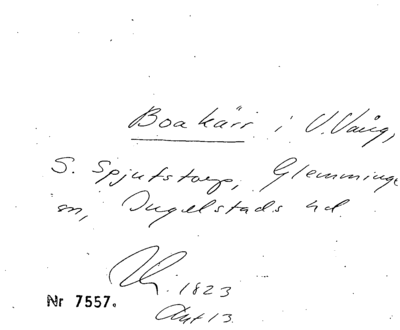 Boakärr i V. Vång,
S. Spjutstorp, Glemminge
sn, Ingelstads hd
1823
Akt 13.
Nr 7557.